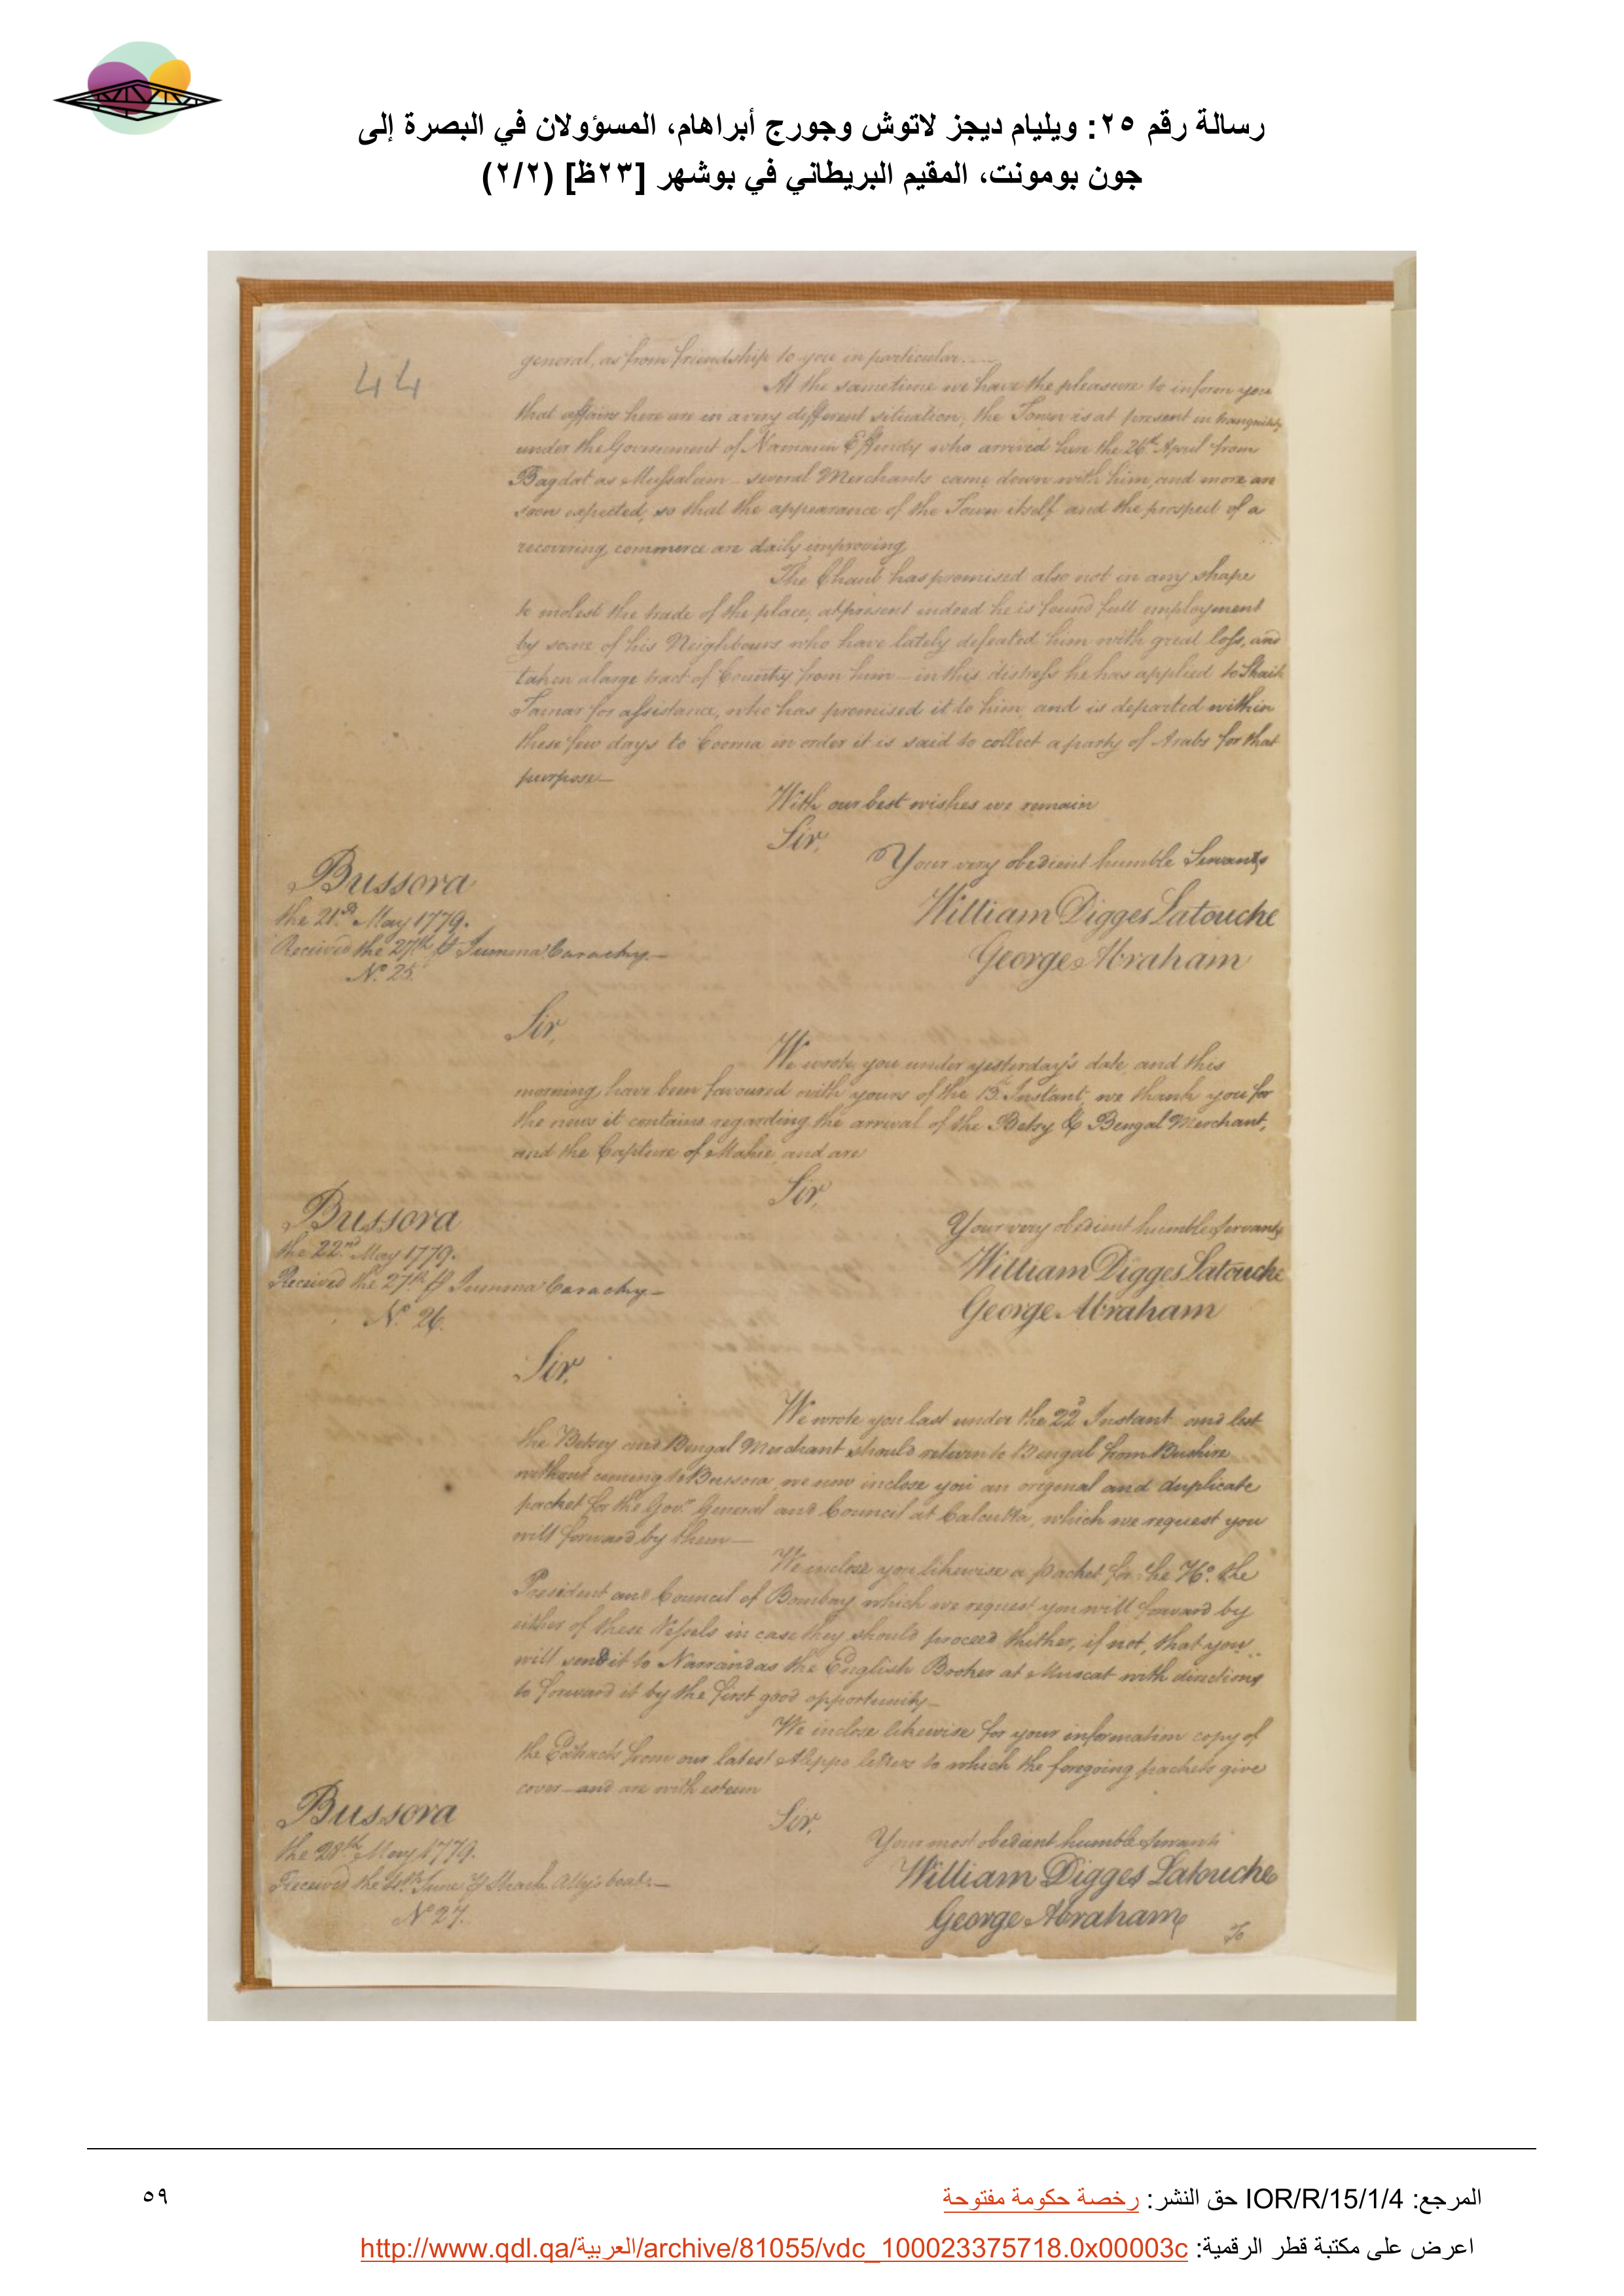 رسالة رقم ٢٥: ويليام ديجز لاتوش وجورج أبراهام، المسؤولان في البصرة إلى
جون بومونت، المقيم البريطاني في بوشهر [٢٣ظ] (٢/٢)
44
general, as from friendship to you in particular.....
At the same time we have the pleasure to inform you
that affairs here are in a very different situation, the Town is at present in tranquility
under the Government of Effendy who arrived here the 26th April from
Bagdat as Mussalam - several Merchants came down with him, and more are
soon expected, so that the appearance of the Town itself and the prospect of a
recovering commerce are daily improving
The Chaub has promised also not in any shape
to molest the trade of the place, at present indeed he is found full employment
by some of his Neighbours who have lately defeated him with great loss, and
taken a large tract of Country from him - in this distress he has applied to Shaik
Tamar for assistance, who has promised it to him and is departed within
these few days to in order it is said to collect a party of Arabs for that
purpose—
With our best wishes we remain
Sir,
Your very obedient humble Servants
Bussora
the 21st May 1779.
William Digges Latouche
Received the 27th
George Abraham
No. 25.
Sir,
We wrote you under yesterday's date, and this
morning have been favoured with yours of the 13th Instant, we thank you for
the news it contains regarding the arrival of the Betsy & Bengal Merchant,
and the Capture of Mahie, and are
Sir,
Bussora
Your very obedient humble Servants
the 22nd May 1779.
William Digges Latouche
Received the 27th
George Abraham
No. 26.
Sir,
We wrote you last under the 22d Instant and lest
the Betsey and Bengal Merchant should return to Bengal from Bushire
without coming to Bussora, we now inclose you an original and duplicate
packet for the Govr. General and Council at Calcutta, which we request you
will forward by them—
We inclose you likewise a packet for the Ho. the
President and Council of Bombay which we request you will forward by
either of these Vessels in case they should proceed thither, if not, that you
will send it to Narrandas the English Broker at Muscat with directions
to forward it by the first good opportunity—
We inclose likewise for your information copy of
the Extracts from our latest Aleppo letters to which the foregoing packets give
cover—and are with esteem
Bussora
Sir,
Your most obedient humble Servants
the 28th May 1779.
William Digges Latouche
Received the 4th June boat.—
No 27.
George Abraham
To
المرجع: IOR/R/15/1/4 حق النشر: رخصة حكومة مفتوحة
٥٩
اعرض على مكتبة قطر الرقمية: http://www.qdl.qa/العربية/archive/81055/vdc_100023375718.0x00003c